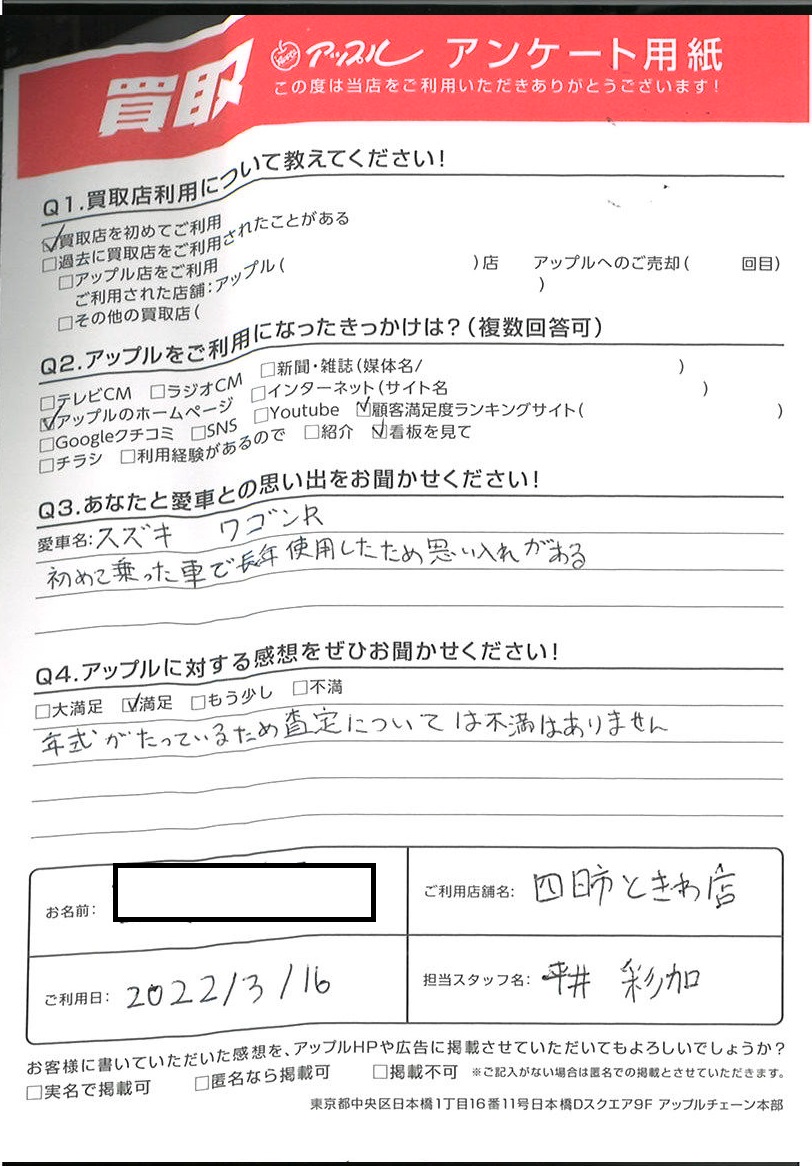 買取 アップル アンケート用紙
この度は当店をご利用いただきありがとうございます!
Q1.買取店利用について教えてください!
☑買取店を初めてご利用
□過去に買取店をご利用されたことがある
□アップル店をご利用
ご利用された店舗:アップル( )店 アップルへのご売却( 回目)
□その他の買取店( )
Q2.アップルをご利用になったきっかけは?(複数回答可)
□テレビCM □ラジオCM □新聞・雑誌(媒体名/ )
☑アップルのホームページ □インターネット(サイト名 )
□Googleクチコミ □SNS □Youtube ☑顧客満足度ランキングサイト( )
□チラシ □利用経験があるので □紹介 ☑看板を見て
Q3.あなたと愛車との思い出をお聞かせください!
愛車名:スズキ ワゴンR
初めて乗った車で長年使用したため思い入れがある
Q4.アップルに対する感想をぜひお聞かせください!
□大満足 ☑満足 □もう少し □不満
年式がたっているため査定については不満はありません
お名前:
ご利用店舗名: 四日市ときわ店
ご利用日: 2022/3/16
担当スタッフ名: 平井 彩加
お客様に書いていただいた感想を、アップルHPや広告に掲載させていただいてもよろしいでしょうか?
□実名で掲載可 □匿名なら掲載可 □掲載不可 ※ご記入がない場合は匿名での掲載とさせていただきます。
東京都中央区日本橋1丁目16番11号日本橋Dスクエア9F アップルチェーン本部